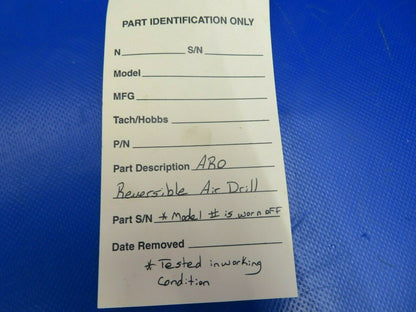 PART IDENTIFICATION ONLY
N__________ S/N__________
Model__________
MFG__________
Tach/Hobbs__________
P/N__________
Part Description ARO
Reversible Air Drill
Part S/N * Model # is worn off
Date Removed__________
* Tested in working
Condition